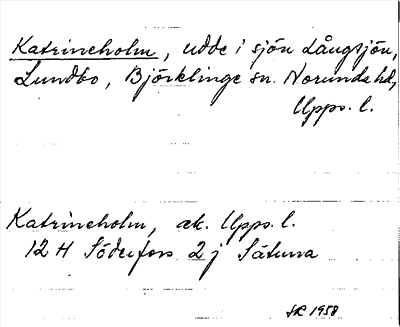 Katrineholm, udde i sjön Långsjön,
Lundbo, Björklinge sn. Norunda hd,
Upps. l.
Katrineholm, ek. Upps. l.
12 H Söderfors 2 j Sätuna
1958